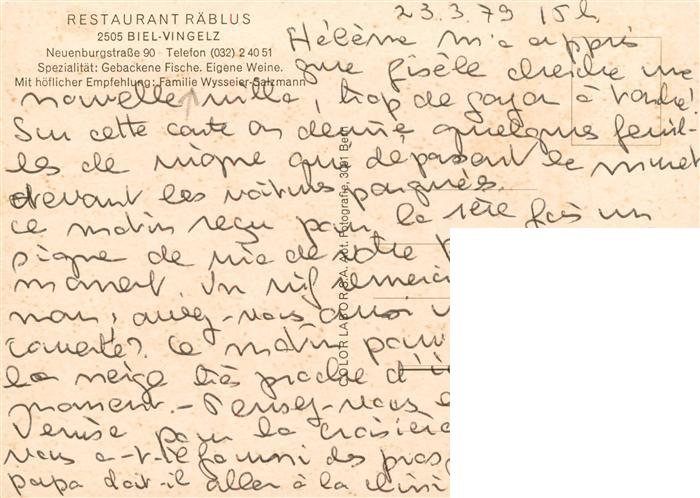 RESTAURANT RÄBLUS
2505 BIEL-VINGELZ
Neuenburgstraße 90 Telefon (032) 2 40 51
Spezialität: Gebackene Fische. Eigene Weine.
Mit höflicher Empfehlung: Familie Wysseier-Salzmann
COLOR LABOR S.A. Abt. Fotografie, 3001 Bern
23.3.79 15h
Hélène m'a appris
que Gisèle cherche une
nouvelle villa, trop de gazon à tondre!
Sur cette carte on devine quelques feuil-
les de vigne qui dépassent le muret
devant les voitures parquées.
Ce matin reçu pour la 1ère fois un
signe de vie de votre
moment. Un vif remerci
mon, avez-vous aussi
couverte? Ce matin
la neige très proche d'
moment. - Pensez-vous
Venise pour la croisière
vous a-t-il fourni des pros
papa doit-il aller à la clini